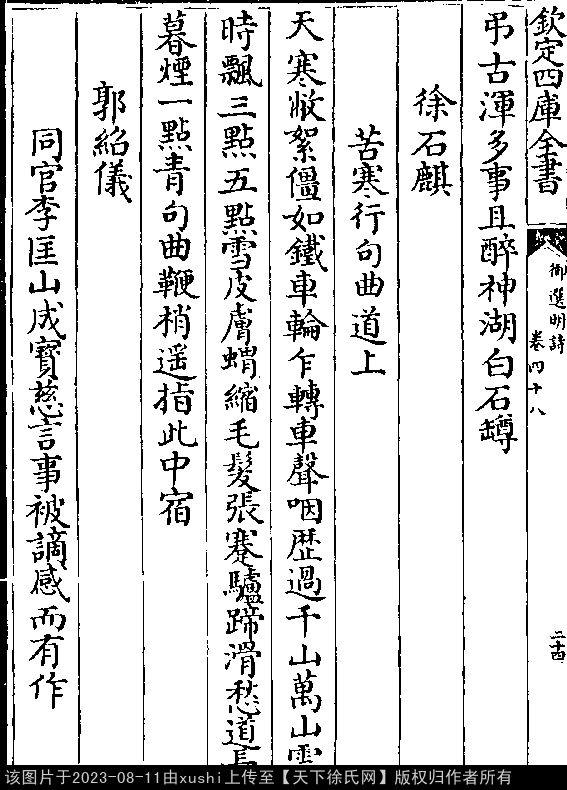 欽定四庫全書
御選明詩
卷四十八
二十四
弔古渾多事且醉神湖白石罇
徐石麒
苦寒行句曲道上
天寒敝絮僵如鐵車輪乍轉車聲咽歴過千山萬山雲
時飄三點五點雪皮膚蝟縮毛髮張蹇驢蹄滑愁道長
暮煙一點青句曲鞭梢遥指此中宿
郭紹儀
同官李匡山成寳慈言事被謫感而有作
该图片于2023-08-11由xushi上传至【天下徐氏网】版权归作者所有